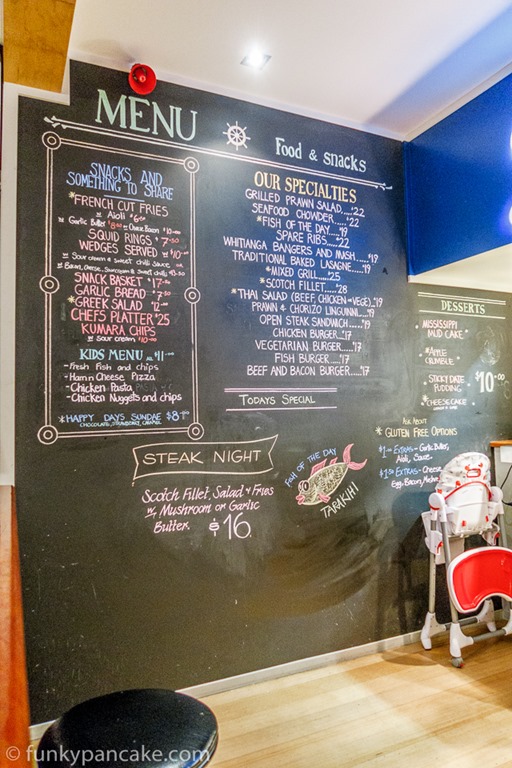 MENU
Food & snacks
SNACKS AND
SOMETHING TO SHARE
*FRENCH CUT FRIES
w Aioli $6.00
w Garlic Butter $8.00 or Onion Bacon $10.00
SQUID RINGS $7.50
WEDGES SERVED $10.00
w Sour cream & sweet chilli sauce
w Bacon, Cheese, Sourcream & sweet chilli
SNACK BASKET $17.00
GARLIC BREAD $7.50
*GREEK SALAD $12.00
CHEFS PLATTER $25
KUMARA CHIPS
w sour cream $10.00
KIDS MENU ALL $11.00
-Fresh Fish and chips
-Ham n Cheese Pizza
-Chicken Pasta
-Chicken Nuggets and chips
*HAPPY DAYS SUNDAE $8.00
CHOCOLATE, STRAWBERRY, CARAMEL
OUR SPECIALTIES
GRILLED PRAWN SALAD.....$22
SEAFOOD CHOWDER.....$22
*FISH OF THE DAY.....$19
SPARE RIBS.....$22
WHITIANGA BANGERS AND MASH....$17
TRADITIONAL BAKED LASAGNE....$19
*MIXED GRILL....$25
*SCOTCH FILLET.....$28
*THAI SALAD (BEEF, CHICKEN OR VEGE)..$19
PRAWN & CHORIZO LINGUINNI....$19
OPEN STEAK SANDWICH.....$19
CHICKEN BURGER....$17
VEGETARIAN BURGER.....$17
FISH BURGER.....$17
BEEF AND BACON BURGER.....$17
TODAYS SPECIAL
DESSERTS
*MISSISSIPPI
MUD CAKE *
*APPLE
CRUMBLE *
*STICKY DATE
PUDDING
$10.00
*CHEESECAKE
ASK ABOUT
*GLUTEN FREE OPTIONS
$1.00 EXTRAS - Garlic Butter,
Aioli, Sauce.
$1.50 EXTRAS - Cheese,
Egg, Bacon,
STEAK NIGHT
Scotch Fillet, Salad & Fries
w Mushroom or Garlic
Butter. $16.
FISH OF THE DAY
TARAKIHI
© funkypancake.com